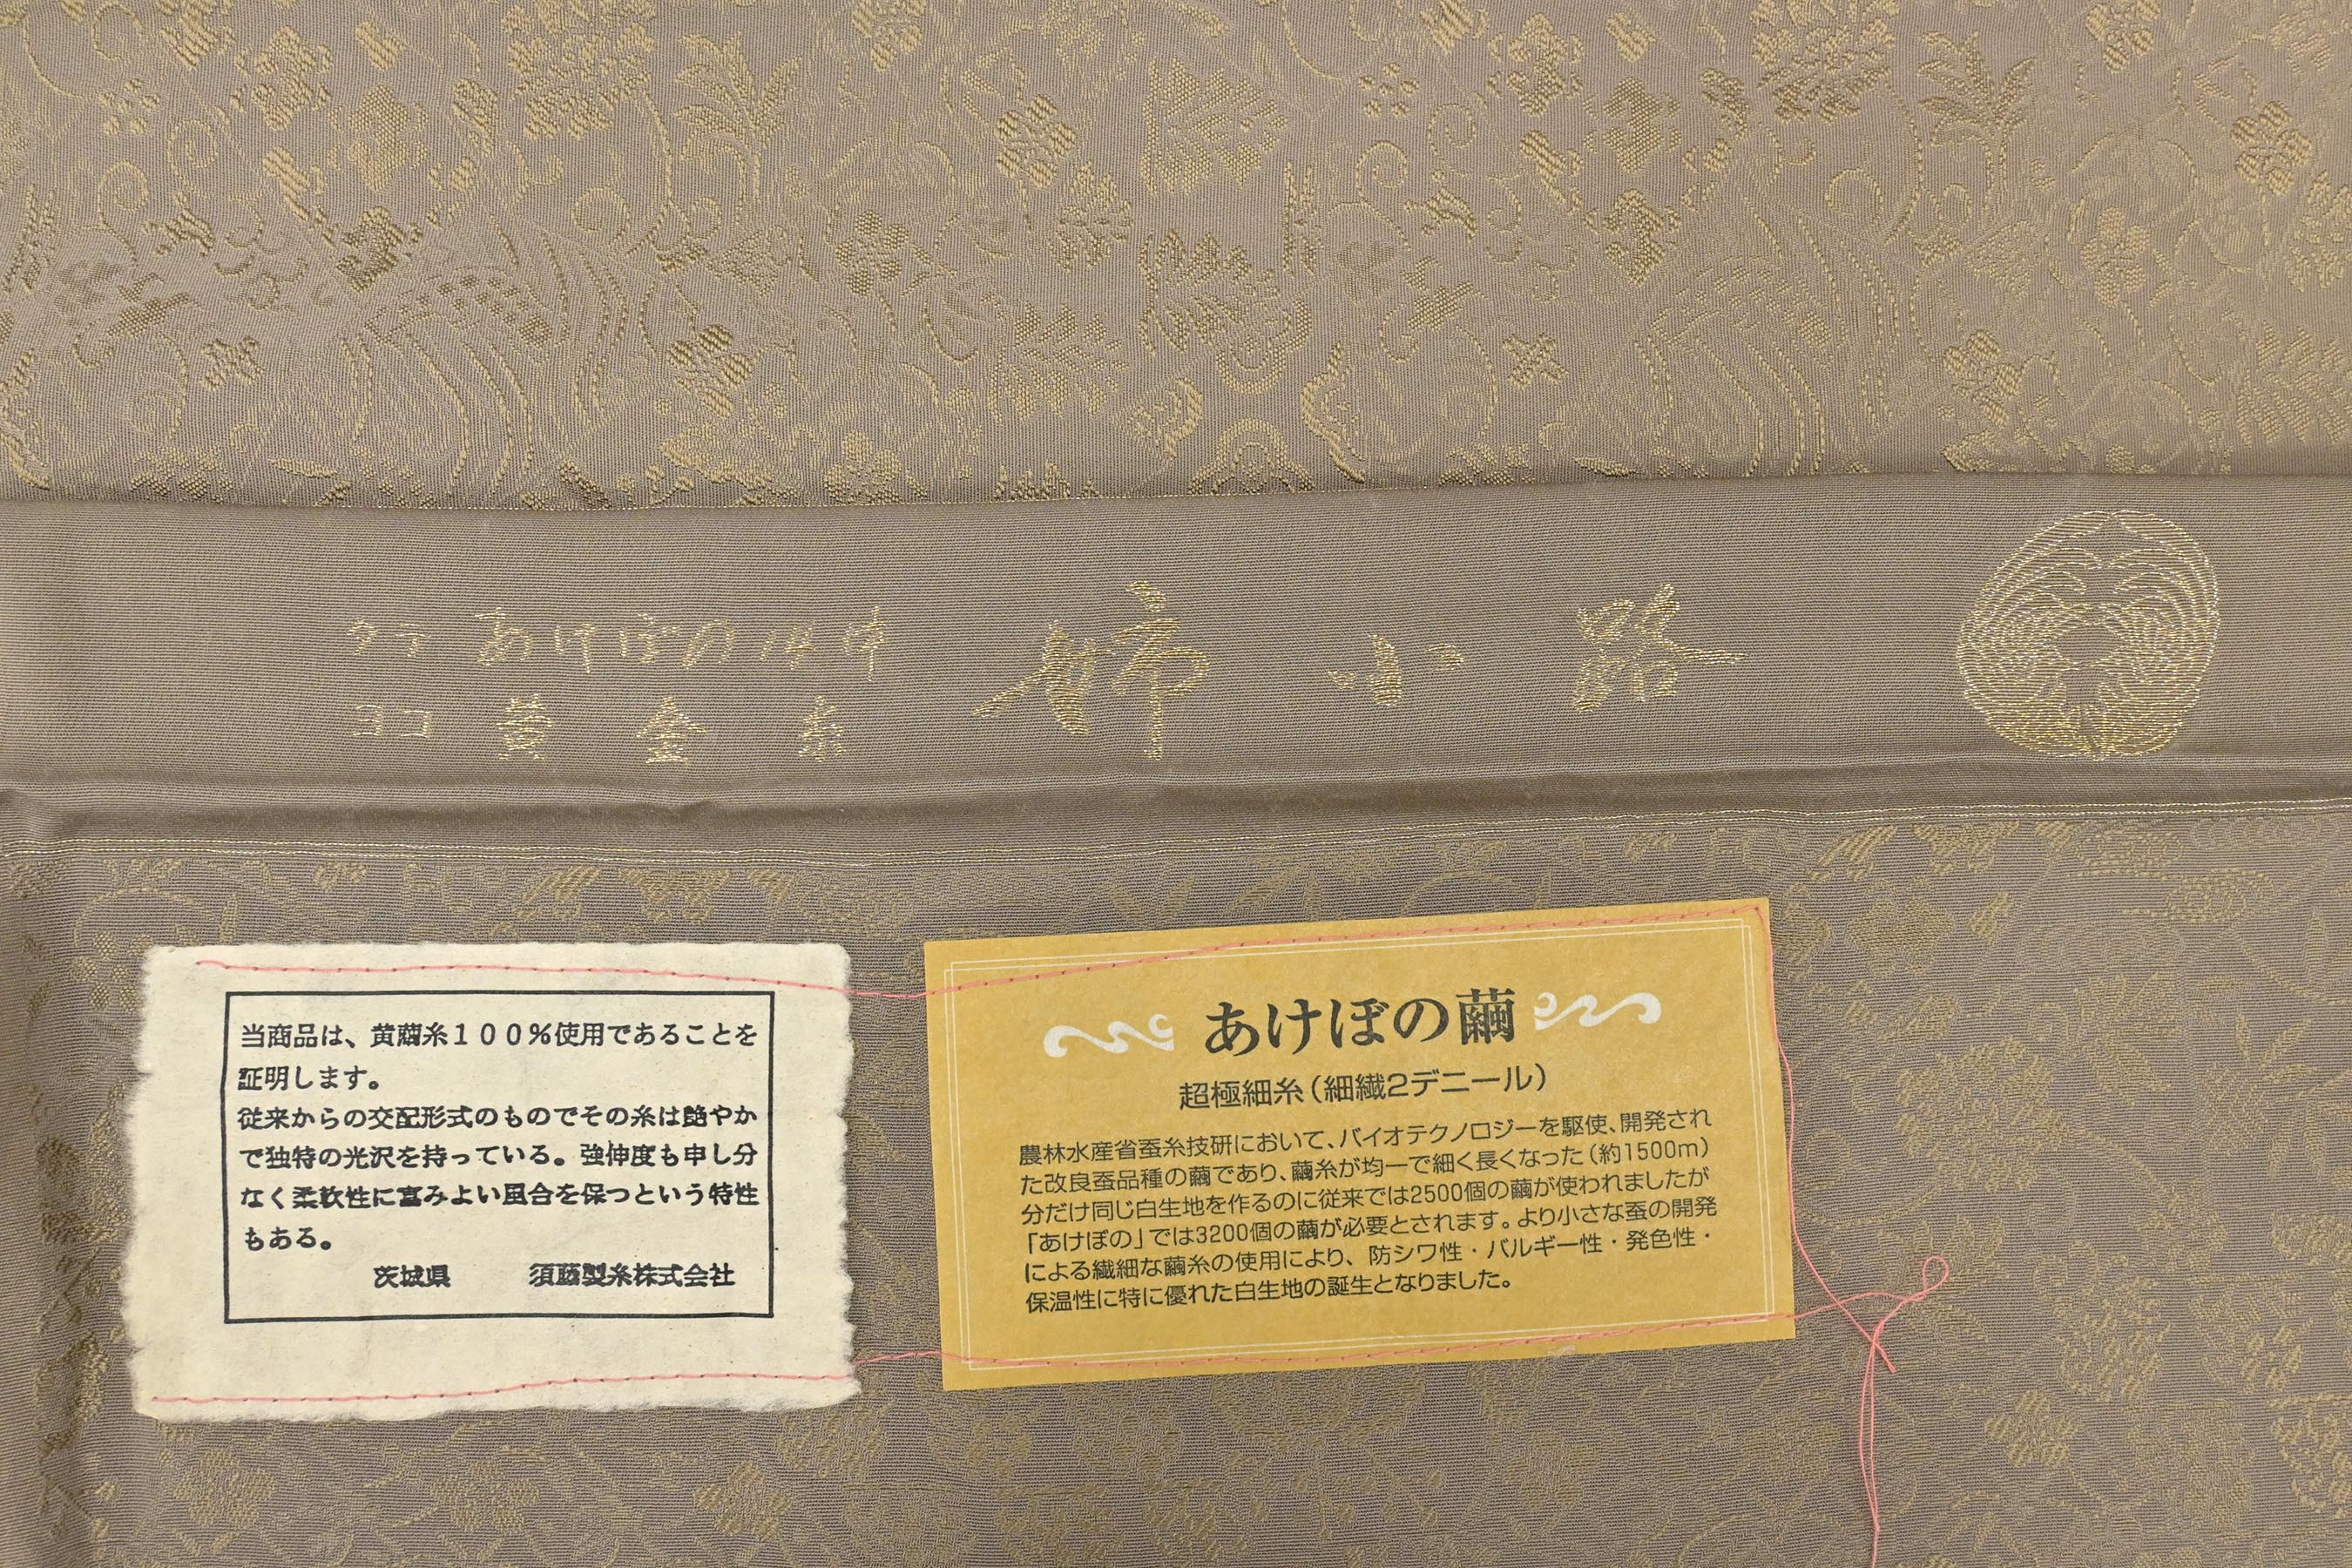 タテ あけぼの14中
ヨコ 黄金糸
姉小路
当商品は、黄繭糸１００％使用であることを
証明します。
従来からの交配形式のものでその糸は艶やか
で独特の光沢を持っている。強伸度も申し分
なく柔軟性に富みよい風合を保つという特性
もある。
茨城県 須藤製糸株式会社
あけぼの繭
超極細糸（細繊2デニール）
農林水産省蚕糸技研において、バイオテクノロジーを駆使、開発され
た改良蚕品種の繭であり、繭糸が均一で細く長くなった（約1500m）
分だけ同じ白生地を作るのに従来では2500個の繭が使われましたが
「あけぼの」では3200個の繭が必要とされます。より小さな蚕の開発
による繊細な繭糸の使用により、防シワ性・バルギー性・発色性・
保温性に特に優れた白生地の誕生となりました。